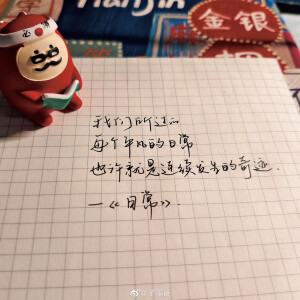 Tianjin
金银
我们所过的
每个平凡的日常
也许就是连续发生的奇迹.
—《日常》.